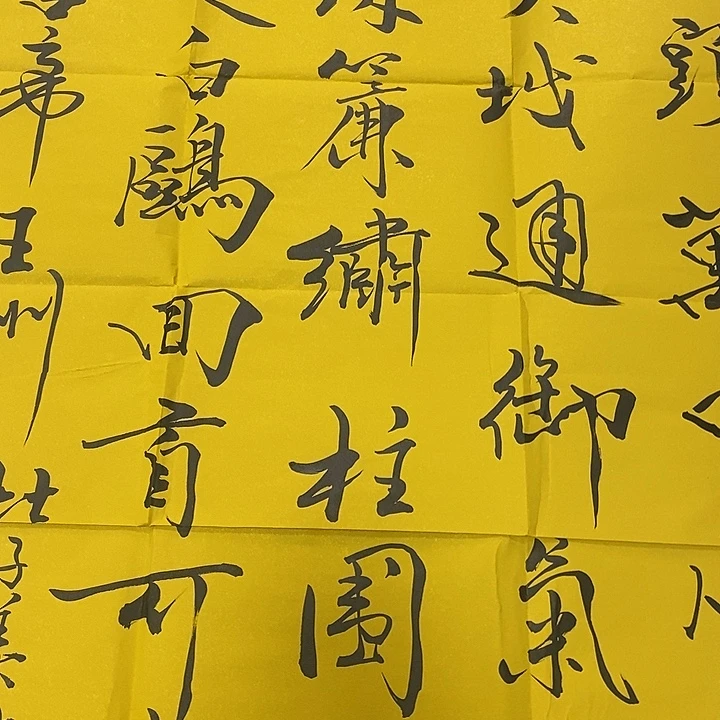 頭萬
城通御氣
珠簾繡柱圍
白鷗回首可
古帝王州杜子美